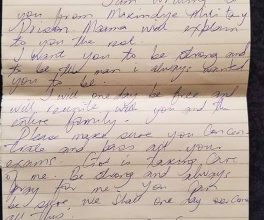 I am writing to
you from Makindye Military
Prison. Mama will explain
to you the rest.
I want you to be strong and
to be that man i always wanted
you to be.
I will one day be free and
will reunite with you and the
entire family.
Please make sure you concen
trate and pass all your
exams. God is taking care
of me. be strong and always
pray for me. You can
be sure, we shall one day
all this